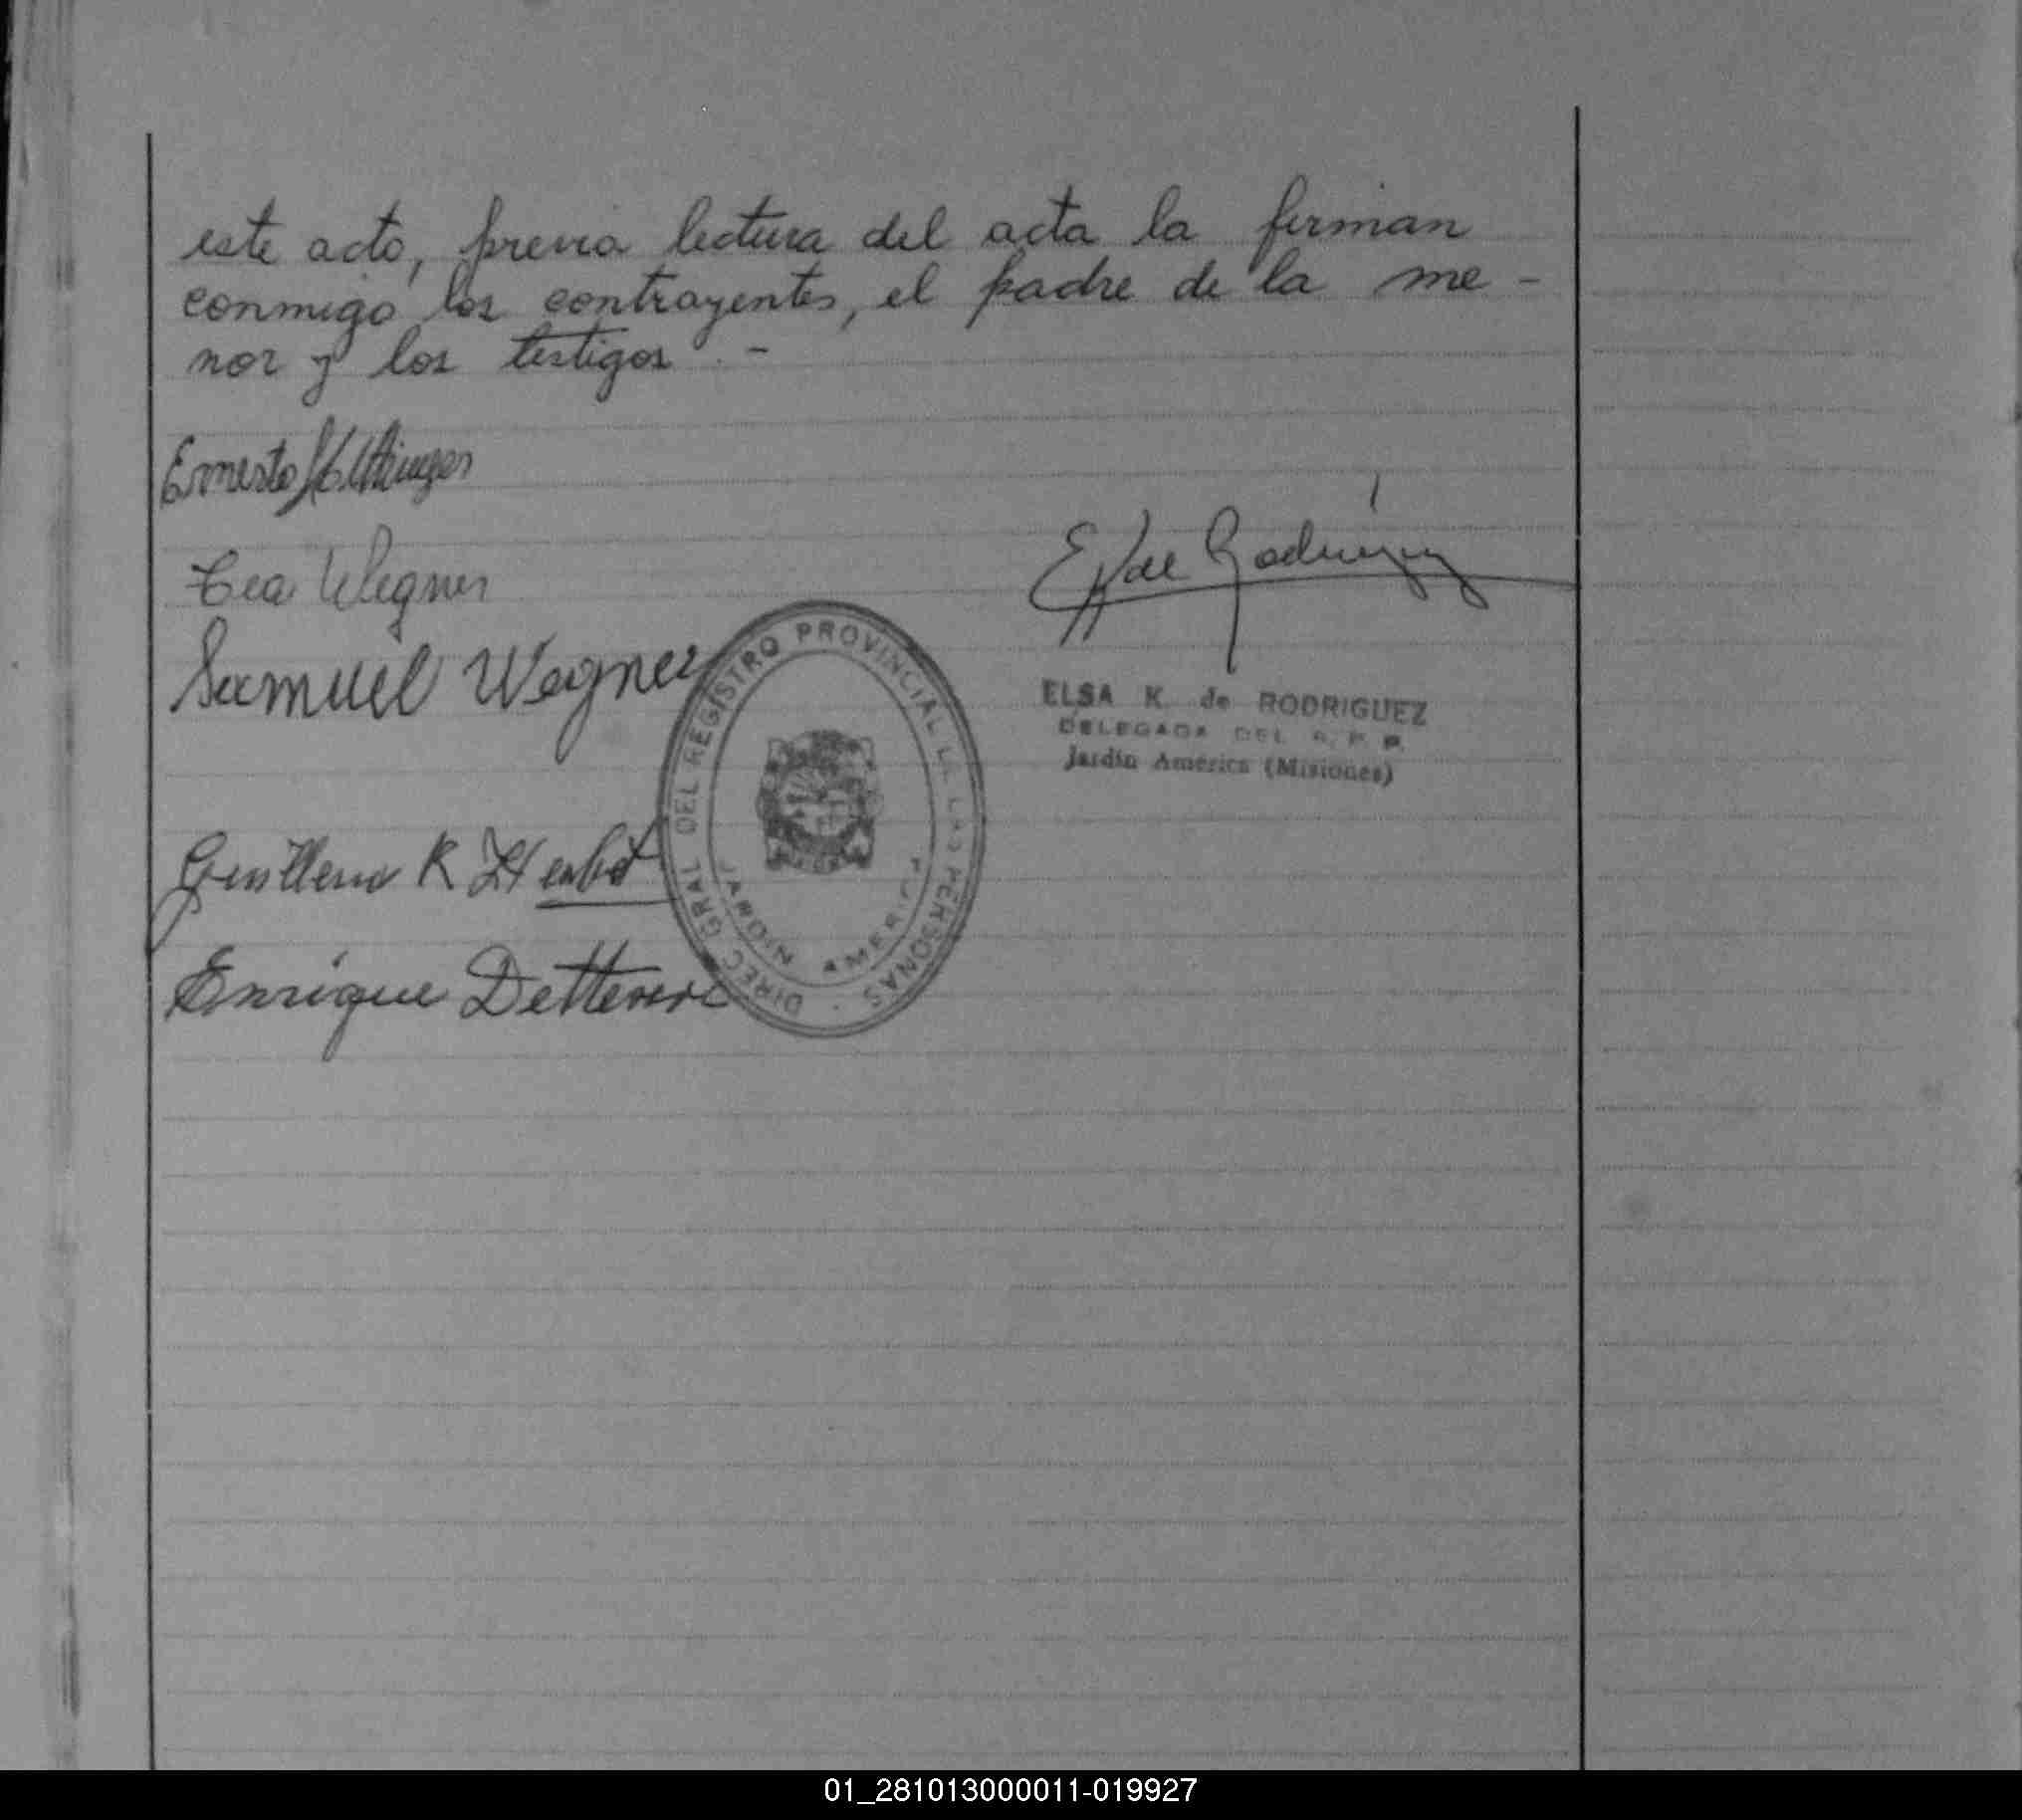 este acto, previa lectura del acta la firman
conmigo los contrayentes, el padre de la me-
nor y los testigos.-
Ernesto
Wegner
Samuel Wegner
Guillermo R
Enrique
E de Rodriguez
ELSA K. de RODRIGUEZ
DELEGADA DEL R. P. P.
Jardín América (Misiones)
DIREC GRAL DEL REGISTRO PROVINCIAL DE LAS PERSONAS
JARDIN AMERICA
01_281013000011-019927